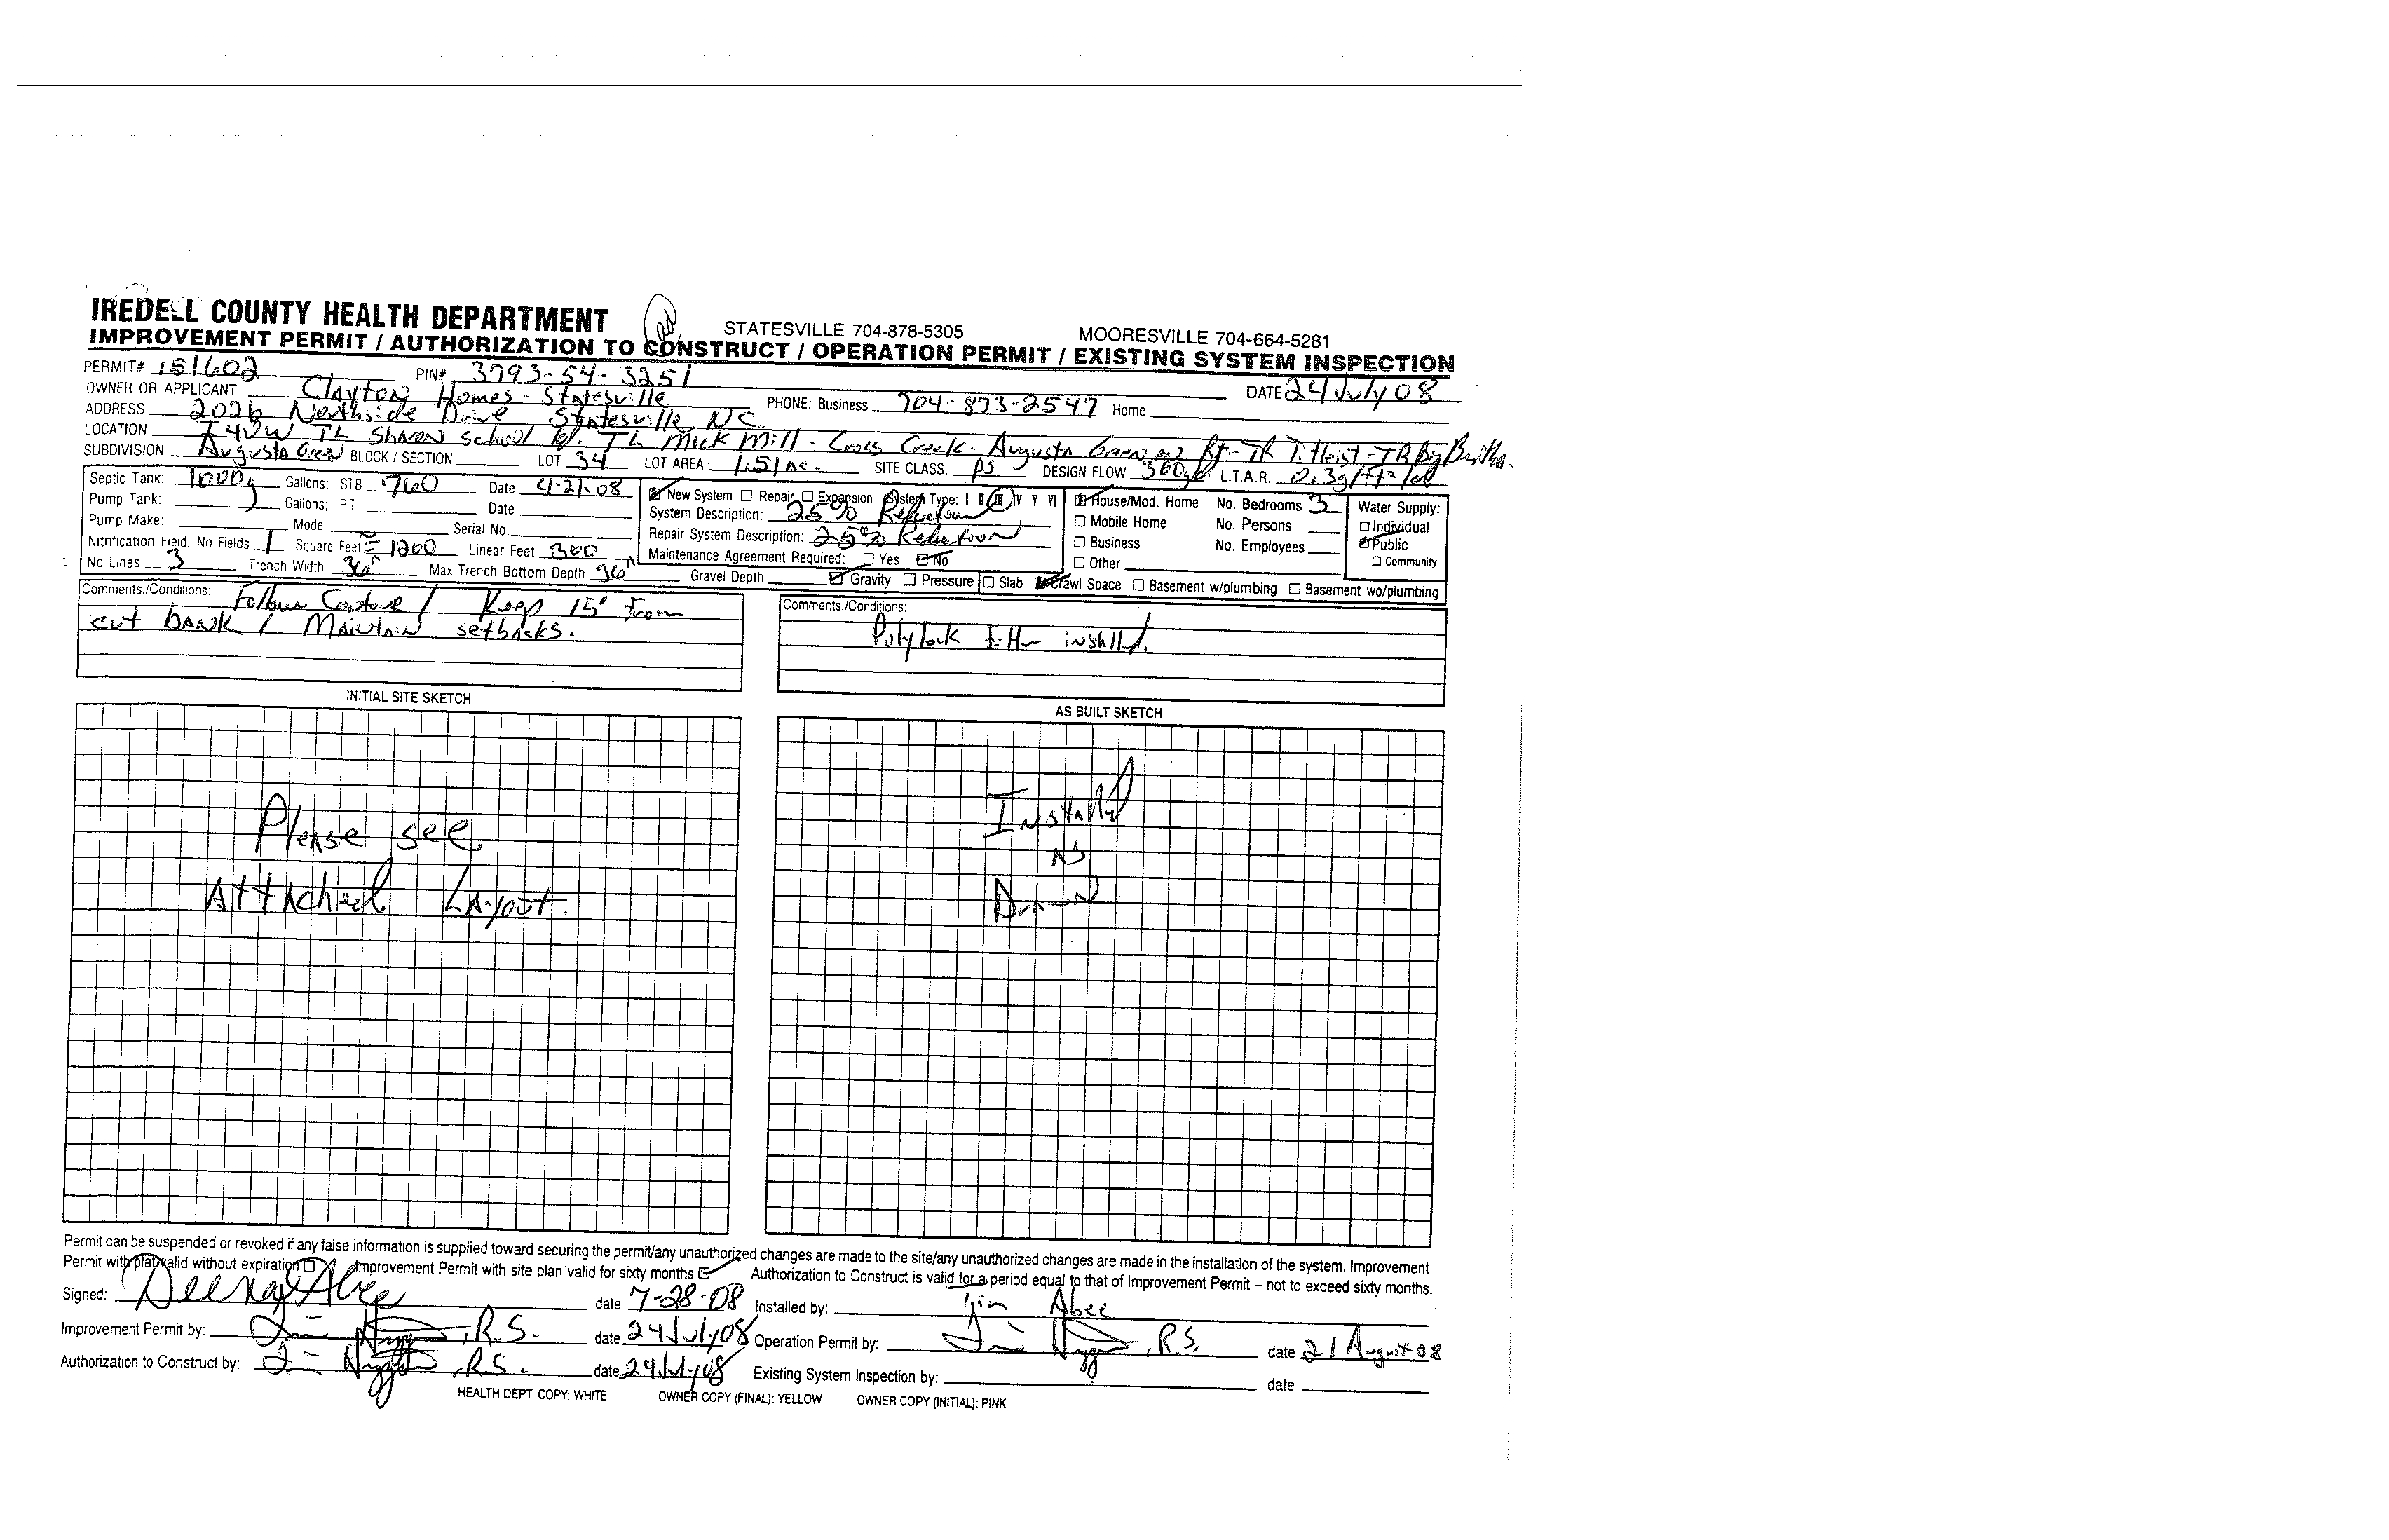 IREDELL COUNTY HEALTH DEPARTMENT
STATESVILLE 704-878-5305 MOORESVILLE 704-664-5281
IMPROVEMENT PERMIT / AUTHORIZATION TO CONSTRUCT / OPERATION PERMIT / EXISTING SYSTEM INSPECTION
PERMIT# 151602 PIN# 3793-54-3251 DATE 24 July 08
OWNER OR APPLICANT Clayton Homes - Statesville PHONE: Business 704-873-2547 Home
ADDRESS 2026 Northside Drive Statesville, NC
LOCATION I 40W TL Sharon School Rd. TL Mick Mill - Cross Creek - Augusta Greens - TR Titleist - TR Big Bertha.
SUBDIVISION Augusta Green BLOCK / SECTION LOT 34 LOT AREA 1.51 ac. SITE CLASS. PS DESIGN FLOW 360gpd L.T.A.R. 0.3g/ft²/d
Septic Tank: 1000g Gallons; STB 760 Date 4-21-08
Pump Tank: Gallons; PT Date
Pump Make: Model Serial No.
Nitrification Field: No Fields 1 Square Feet = 1200 Linear Feet 300
No Lines 3 Trench Width 36" Max Trench Bottom Depth 36" Gravel Depth Gravity Pressure Slab Crawl Space Basement w/plumbing Basement wo/plumbing
New System Repair Expansion System Type: I II III IV V VI
System Description: 25% Reduction
Repair System Description: 25% Reduction
Maintenance Agreement Required: Yes No
House/Mod. Home No. Bedrooms 3
Mobile Home No. Persons
Business No. Employees
Other
Water Supply:
Individual
Public
Community
Comments:/Conditions: Follow Contour / Keep 15' From
cut BANK / Maintain setbacks.
Comments:/Conditions:
Polylock filter installed.
INITIAL SITE SKETCH
Please see
Attached Layout.
AS BUILT SKETCH
Installed
AS
Drawn
Permit can be suspended or revoked if any false information is supplied toward securing the permit/any unauthorized changes are made to the site/any unauthorized changes are made in the installation of the system. Improvement
Permit with plat valid without expiration Improvement Permit with site plan valid for sixty months Authorization to Construct is valid for a period equal to that of Improvement Permit – not to exceed sixty months.
Signed: Deena Abee date 7-28-08 Installed by: Tim Abee
Improvement Permit by: , R.S. date 24 July 08 Operation Permit by: , R.S. date 21 August 08
Authorization to Construct by: , R.S. date 24 July 08 Existing System Inspection by: date
HEALTH DEPT. COPY: WHITE OWNER COPY (FINAL): YELLOW OWNER COPY (INITIAL): PINK